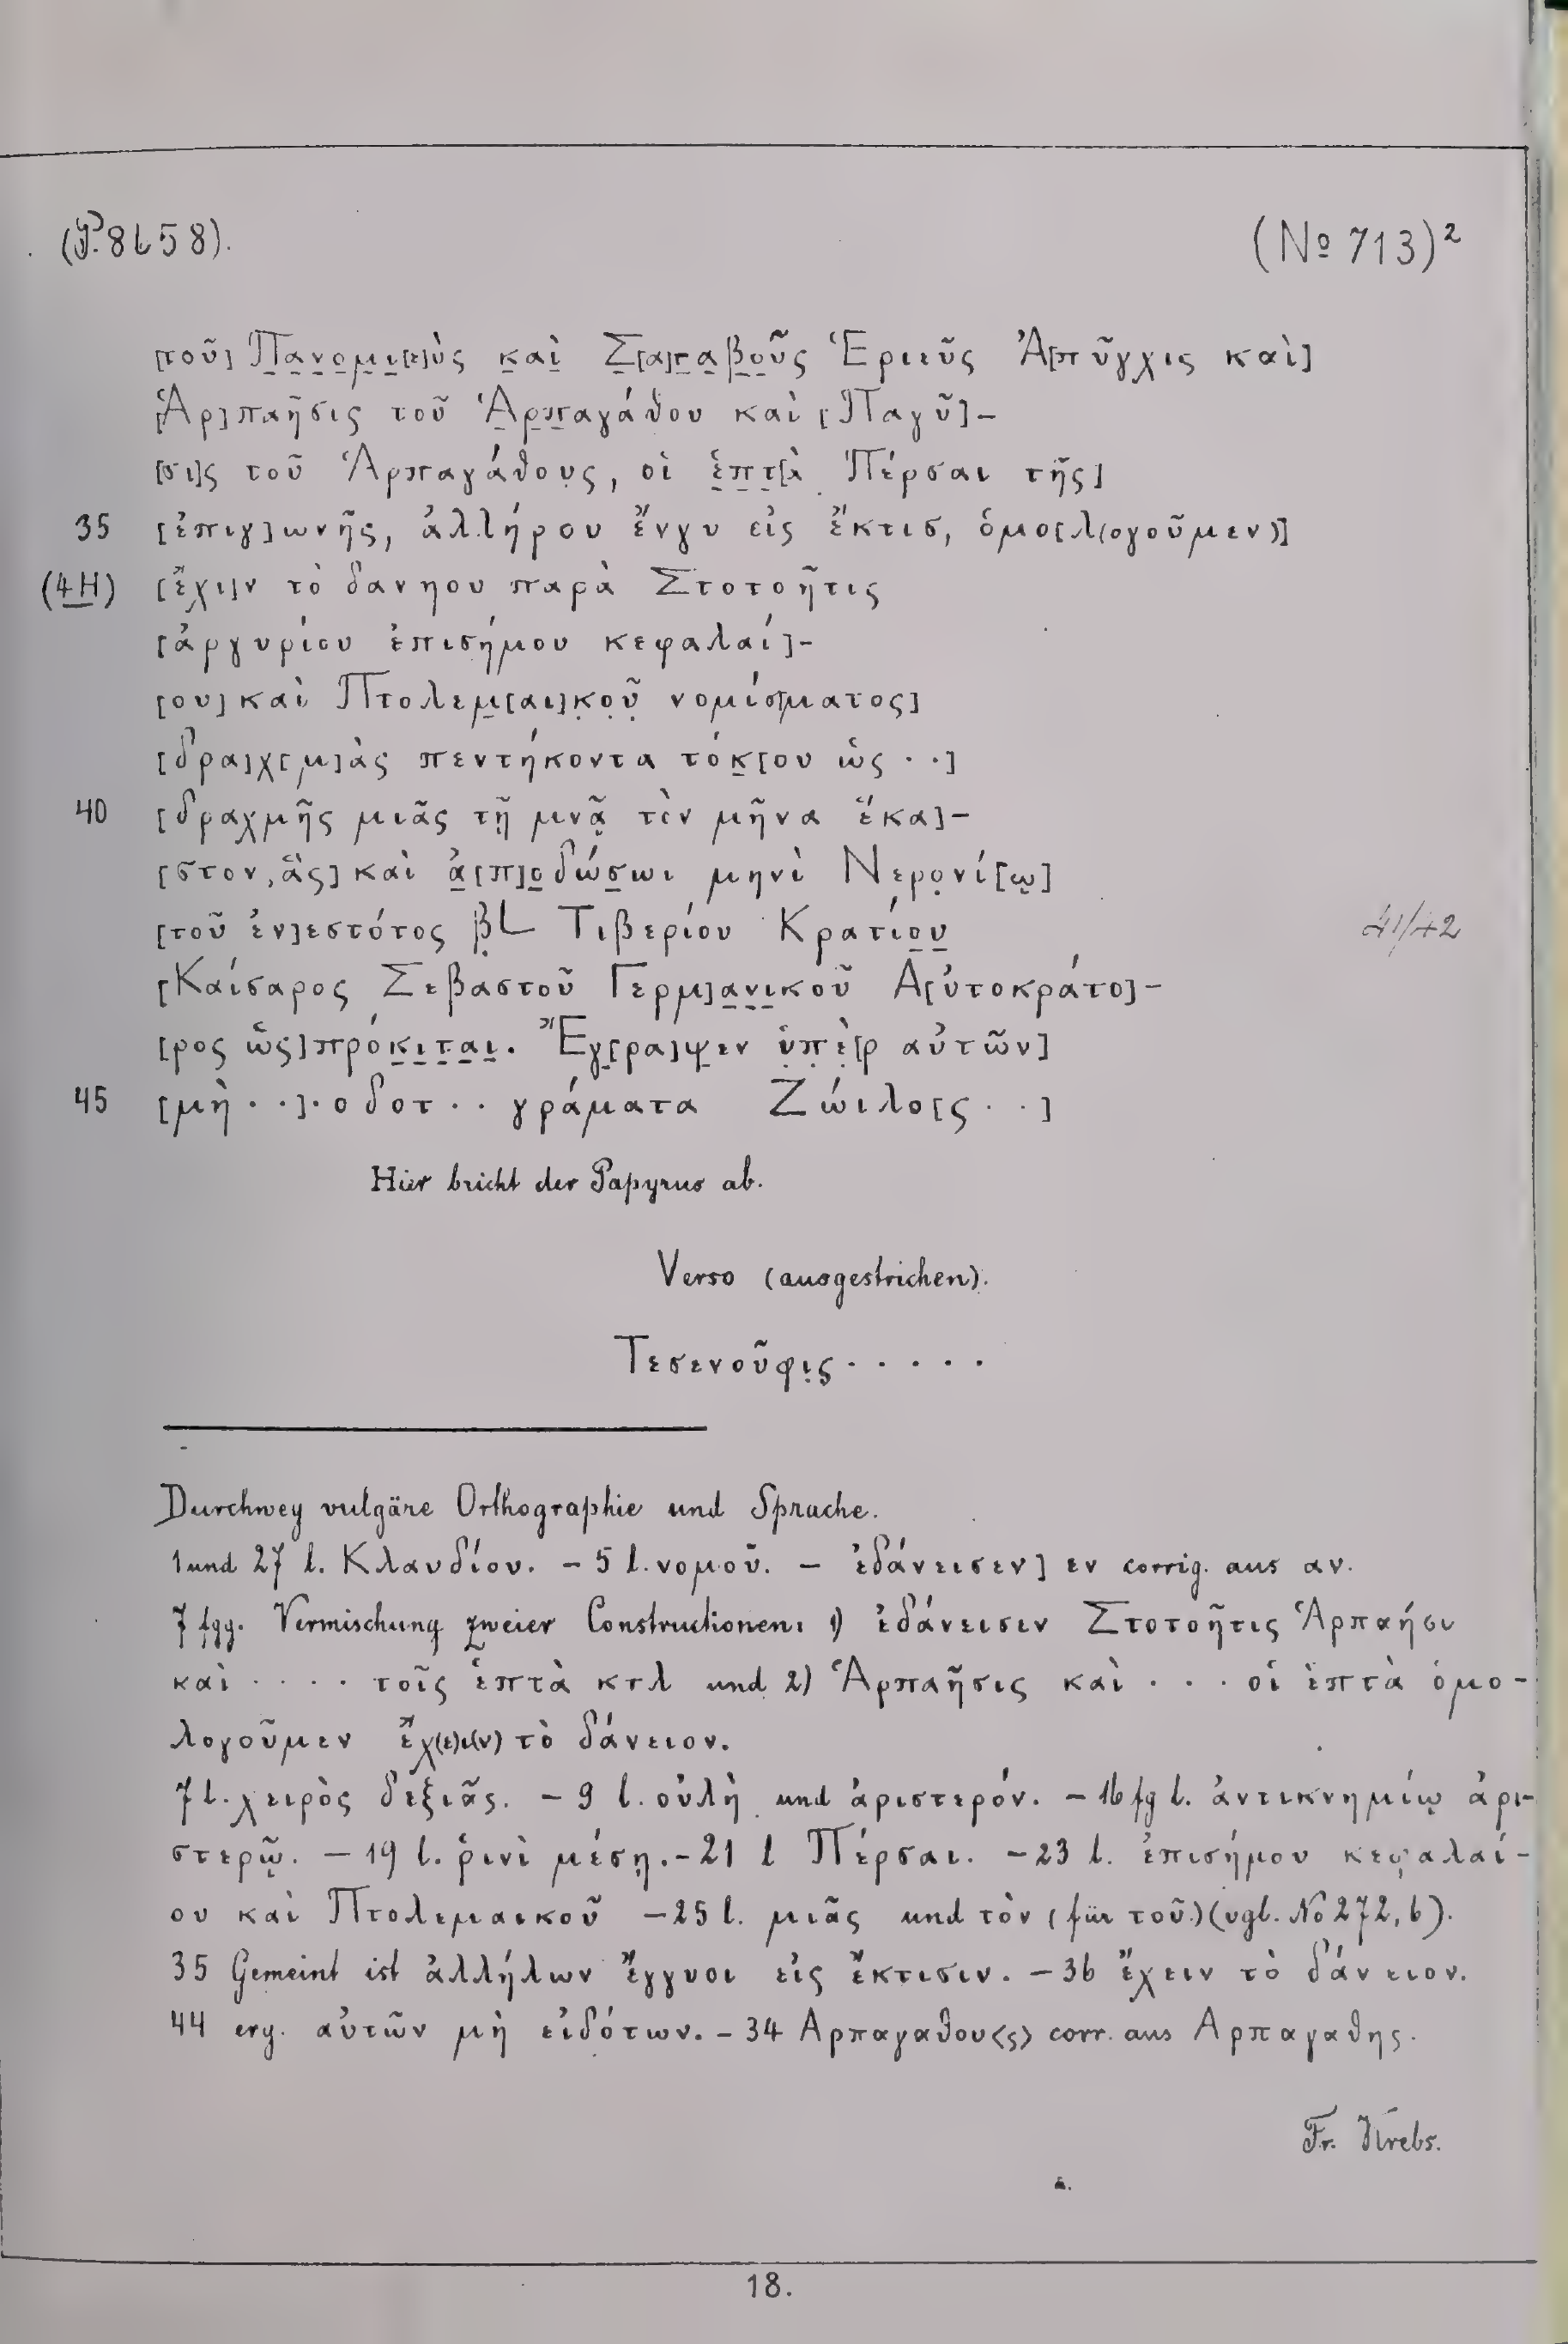 (P. 8658).
(No 713)²
[τοῦ] Π̣α̣ν̣ο̣μ̣ι̣[ε]ὺς κ̣αὶ̣ Σ̣[α]τ̣α̣β̣ο̣ῦς Ἑριεῦς Ἀ[πῦγχις καὶ]
[Ἁρ]παῆσις τοῦ Ἁ̣ρ̣π̣αγάθου καὶ [Παγῦ]-
[σι]ς τοῦ Ἁρπαγάθου̣ς, οἱ ἑ̣π̣τ̣[ὰ Πέρσαι τῆς]
35 [ἐπιγ]ωνῆς, ἀλλήρου ἔνγυ εἰς ἔκτισ, ὁμο[λ(ογοῦμεν)]
(4 H) [ἔχι]ν τὸ δανηου παρὰ Στοτοῆτις
[ἀργυρίου ἐπισήμου κεφαλαί]-
[ου] καὶ Πτολεμ̣[αι]κ̣ο̣ῦ̣ νομίσ[ματος]
[δρα]χ[μ]ὰς πεντήκοντα τόκ̣[ου ὡς · ·]
40 [δραχμῆς μιᾶς τῇ μνᾷ τὸν μῆνα ἕκα]-
[στον, ἃς] καὶ ἀ̣[π]ο̣δώσ̣ωι μηνὶ Νερο̣νί[ῳ]
[τοῦ ἐν]εστότος β̣L Τιβερίου Κρατίο̣υ̣
41/42
[Καίσαρος Σεβαστοῦ Γερμ]α̣ν̣ι̣κοῦ Α[ὐτοκράτο]-
[ρος ὡς] πρόκ̣ι̣τ̣α̣ι̣. Ἔγ̣[ρα]ψ̣εν ὑ̣π̣ὲ̣[ρ αὐτῶν]
45 [μὴ · ·] · οδοτ · · γράματα Ζώιλο[ς · ·]
Hier bricht der Papyrus ab.
Verso (ausgestrichen).
Τεσενοῦφι̣ς · · · · ·
Durchweg vulgäre Orthographie und Sprache.
1 und 27 l. Κλαυδίου. – 5 l. νομοῦ. – ἐδάνεισεν] εν corrig. aus αν.
7 fgg. Vermischung zweier Constructionen: 1) ἐδάνεισεν Στοτοῆτις Ἁρπαήσι
καὶ · · · · τοῖς ἑπτὰ κτλ und 2) Ἁρπαῆσις καὶ · · · οἱ ἑπτὰ ὁμο-
λογοῦμεν ἔχ(ε)ι(ν) τὸ δάνειον.
7 l. χειρὸς δεξιᾶς. – 9 l. οὐλὴ und ἀριστερόν. – 16 fg l. ἀντικνημίῳ ἀρι-
στερῷ. – 19 l. ῥινὶ μέσῃ. – 21 l Πέρσαι. – 23 l. ἐπισήμου κεφαλαί-
ου καὶ Πτολεμαικοῦ – 25 l. μιᾶς und τὸν (für τοῦ.) (vgl. No 272, 6).
35 Gemeint ist ἀλλήλων ἔγγυοι εἰς ἔκτισιν. – 36 ἔχειν τὸ δάνειον.
44 erg. αὐτῶν μὴ εἰδότων. – 34 Αρπαγαθου<ς> corr. aus Αρπαγαθης.
Fr. Krebs.
18.